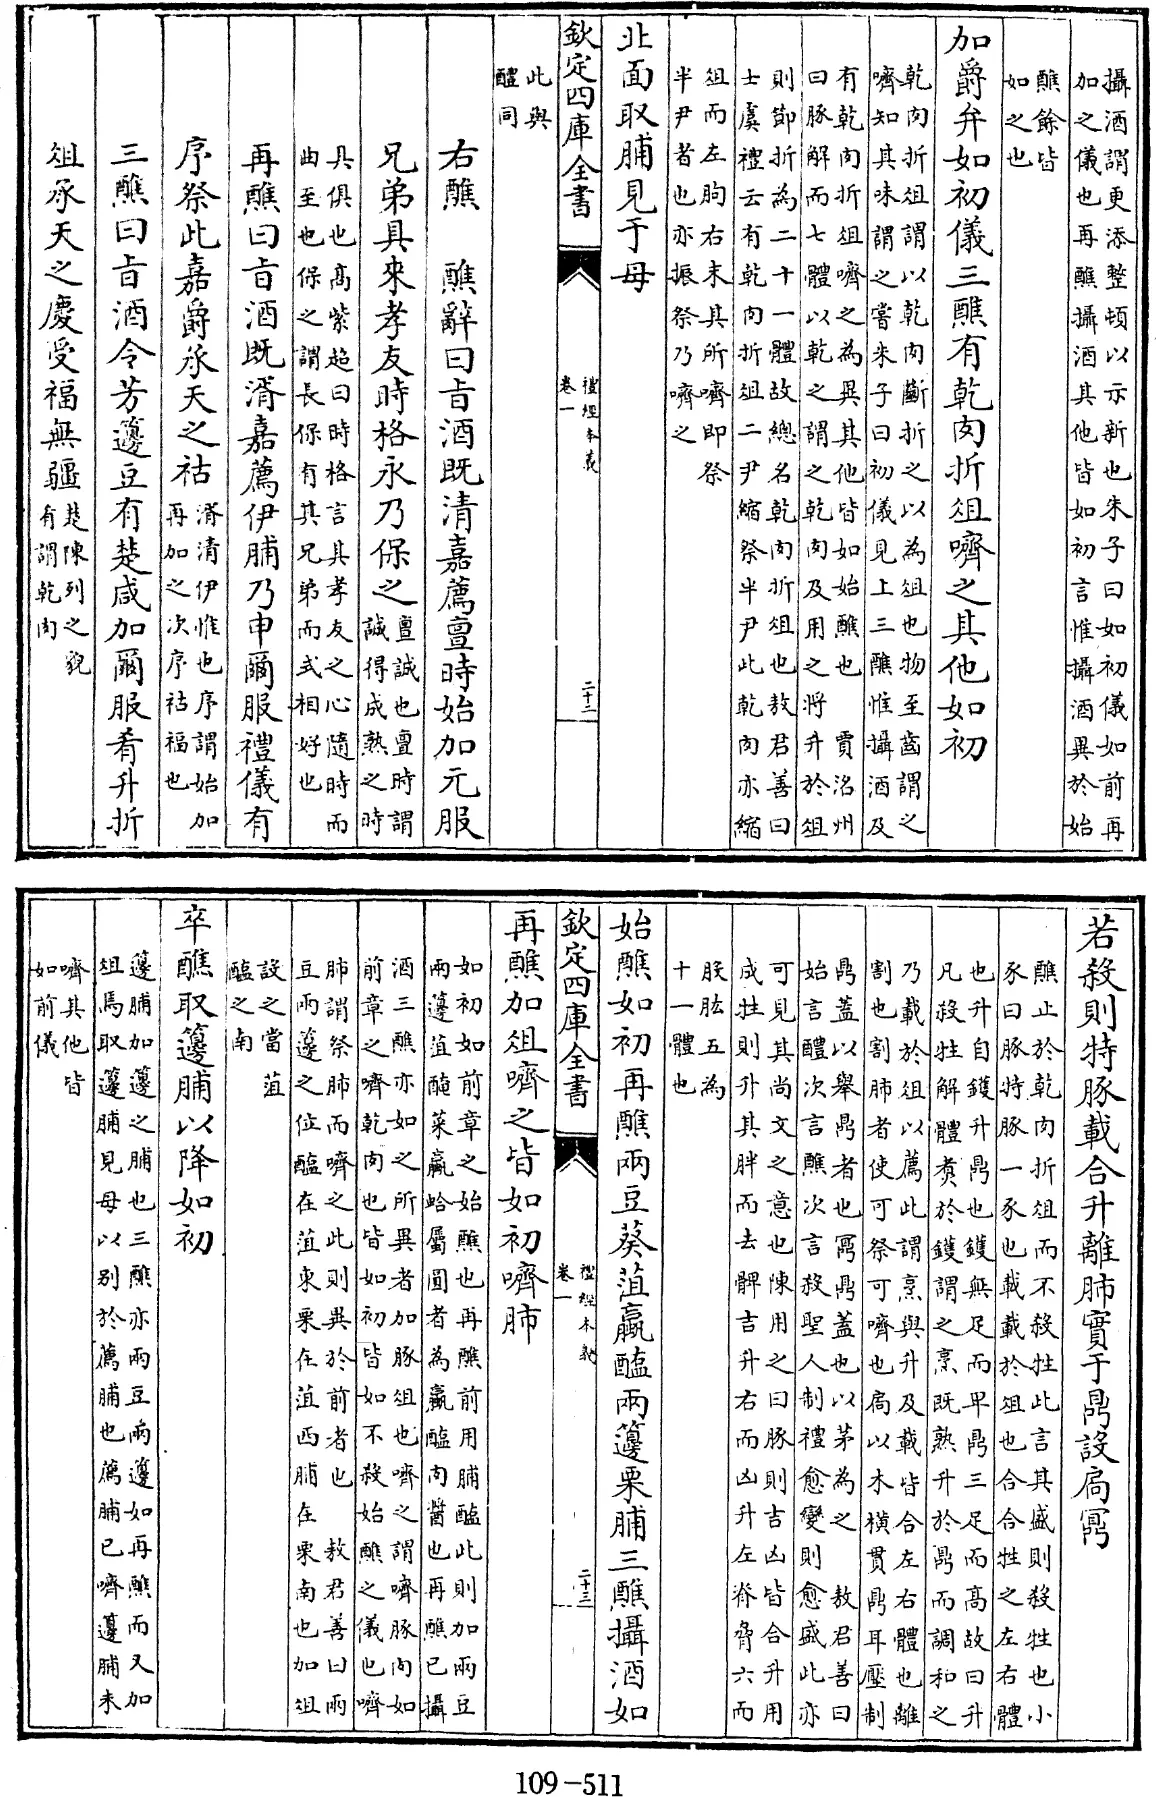 攝酒謂更添整頓以示新也朱子曰如初儀如前再
加之儀也再醮攝酒其他皆如初言惟攝酒異於始
醮餘皆
如之也
加爵弁如初儀三醮有乾肉折俎嚌之其他如初
乾肉折俎謂以乾肉斷折之以為俎也物至齒謂之
嚌知其味謂之嘗朱子曰初儀見上三醮惟攝酒及
有乾肉折俎嚌之為異其他皆如始醮也 賈洺州
曰豚解而七體以乾之謂之乾肉及用之將升於俎
則節折為二十一體故總名乾肉折俎也敖君善曰
士虞禮云有乾肉折俎二尹縮祭半尹此乾肉亦縮
俎而左朐右末其所嚌即祭
半尹者也亦振祭乃嚌之
北面取脯見于母
欽定四庫全書
禮經本義
卷一
二十二
此與
醴同
右醮 醮辭曰旨酒既清嘉薦亶時始加元服
兄弟具來孝友時格永乃保之亶誠也亶時謂
誠得成熟之時
具俱也高紫超曰時格言其孝友之心隨時而
曲至也保之謂長保有其兄弟而式相好也
再醮曰旨酒既湑嘉薦伊脯乃申爾服禮儀有
序祭此嘉爵承天之祜湑清伊惟也序謂始加
再加之次序祜福也
三醮曰旨酒令芳籩豆有楚咸加爾服肴升折
俎承天之慶受福無疆楚陳列之貌
有謂乾肉
若殺則特豚載合升離肺實于鼎設扃鼏
醮止於乾肉折俎而不殺牲此言其盛則殺牲也小
豕曰豚特豚一豕也載載於俎也合合牲之左右體
也升自鑊升鼎也鑊無足而卑鼎三足而高故曰升
凡殺牲解體煑於鑊謂之烹既熟升於鼎而調和之
乃載於俎以薦此謂烹與升及載皆合左右體也離
割也割肺者使可祭可嚌也扃以木橫貫鼎耳壓制
鼎蓋以舉鼎者也鼏鼎蓋也以茅為之 敖君善曰
始言醴次言醮次言殺聖人制禮愈變則愈盛此亦
可見其尚文之意也陳用之曰豚則吉凶皆合升用
成牲則升其胖而去髀吉升右而凶升左脊脅六而
肱股五為
十一體也
始醮如初再醮兩豆葵菹蠃醢兩籩栗脯三醮攝酒如
欽定四庫全書
禮經本義
卷一
二十三
再醮加俎嚌之皆如初嚌肺
如初如前章之始醮也再醮前用脯醢此則加兩豆
兩籩菹醃菜蠃蛤屬圓者為蠃醢肉醬也再醮已攝
酒三醮亦如之所異者加豚俎也嚌之謂嚌豚肉如
前章之嚌乾肉也皆如初皆如不殺始醮之儀也嚌
肺謂祭肺而嚌之此則異於前者也 敖君善曰兩
豆兩籩之位醢在菹東栗在菹西脯在栗南也加俎
設之當菹
醢之南
卒醮取籩脯以降如初
籩脯加籩之脯也三醮亦兩豆兩籩如再醮而又加
俎焉取籩脯見母以别於薦脯也薦脯已嚌籩脯未
嚌其他皆
如前儀
109-511